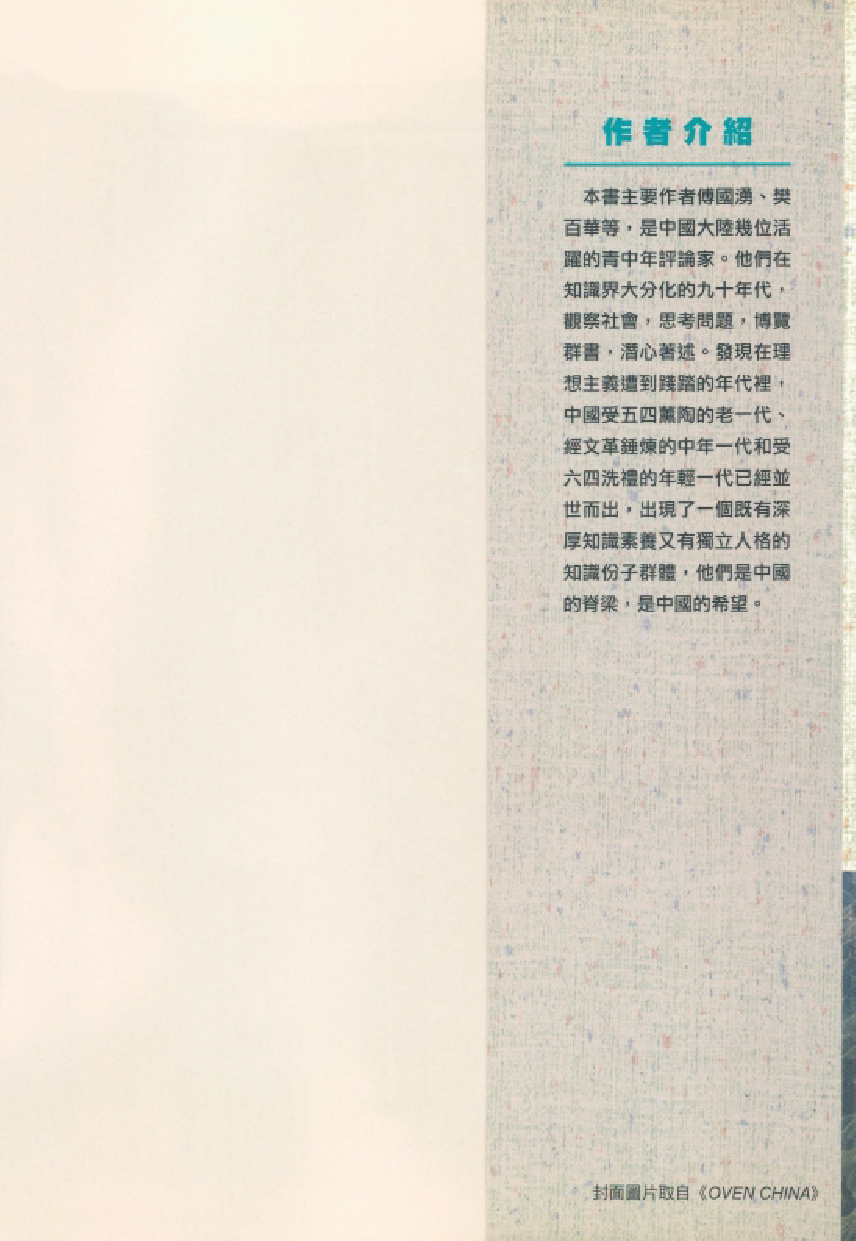 作者介紹
本書主要作者傅國湧、樊
百華等，是中國大陸幾位活
躍的青中年評論家。他們在
知識界大分化的九十年代，
觀察社會，思考問題，博覽
群書，潛心著述。發現在理
想主義遭到踐踏的年代裡，
中國受五四薰陶的老一代、
經文革錘煉的中年一代和受
六四洗禮的年輕一代已經並
世而出，出現了一個既有深
厚知識素養又有獨立人格的
知識份子群體，他們是中國
的脊梁，是中國的希望。
封面圖片取自《OVEN CHINA》